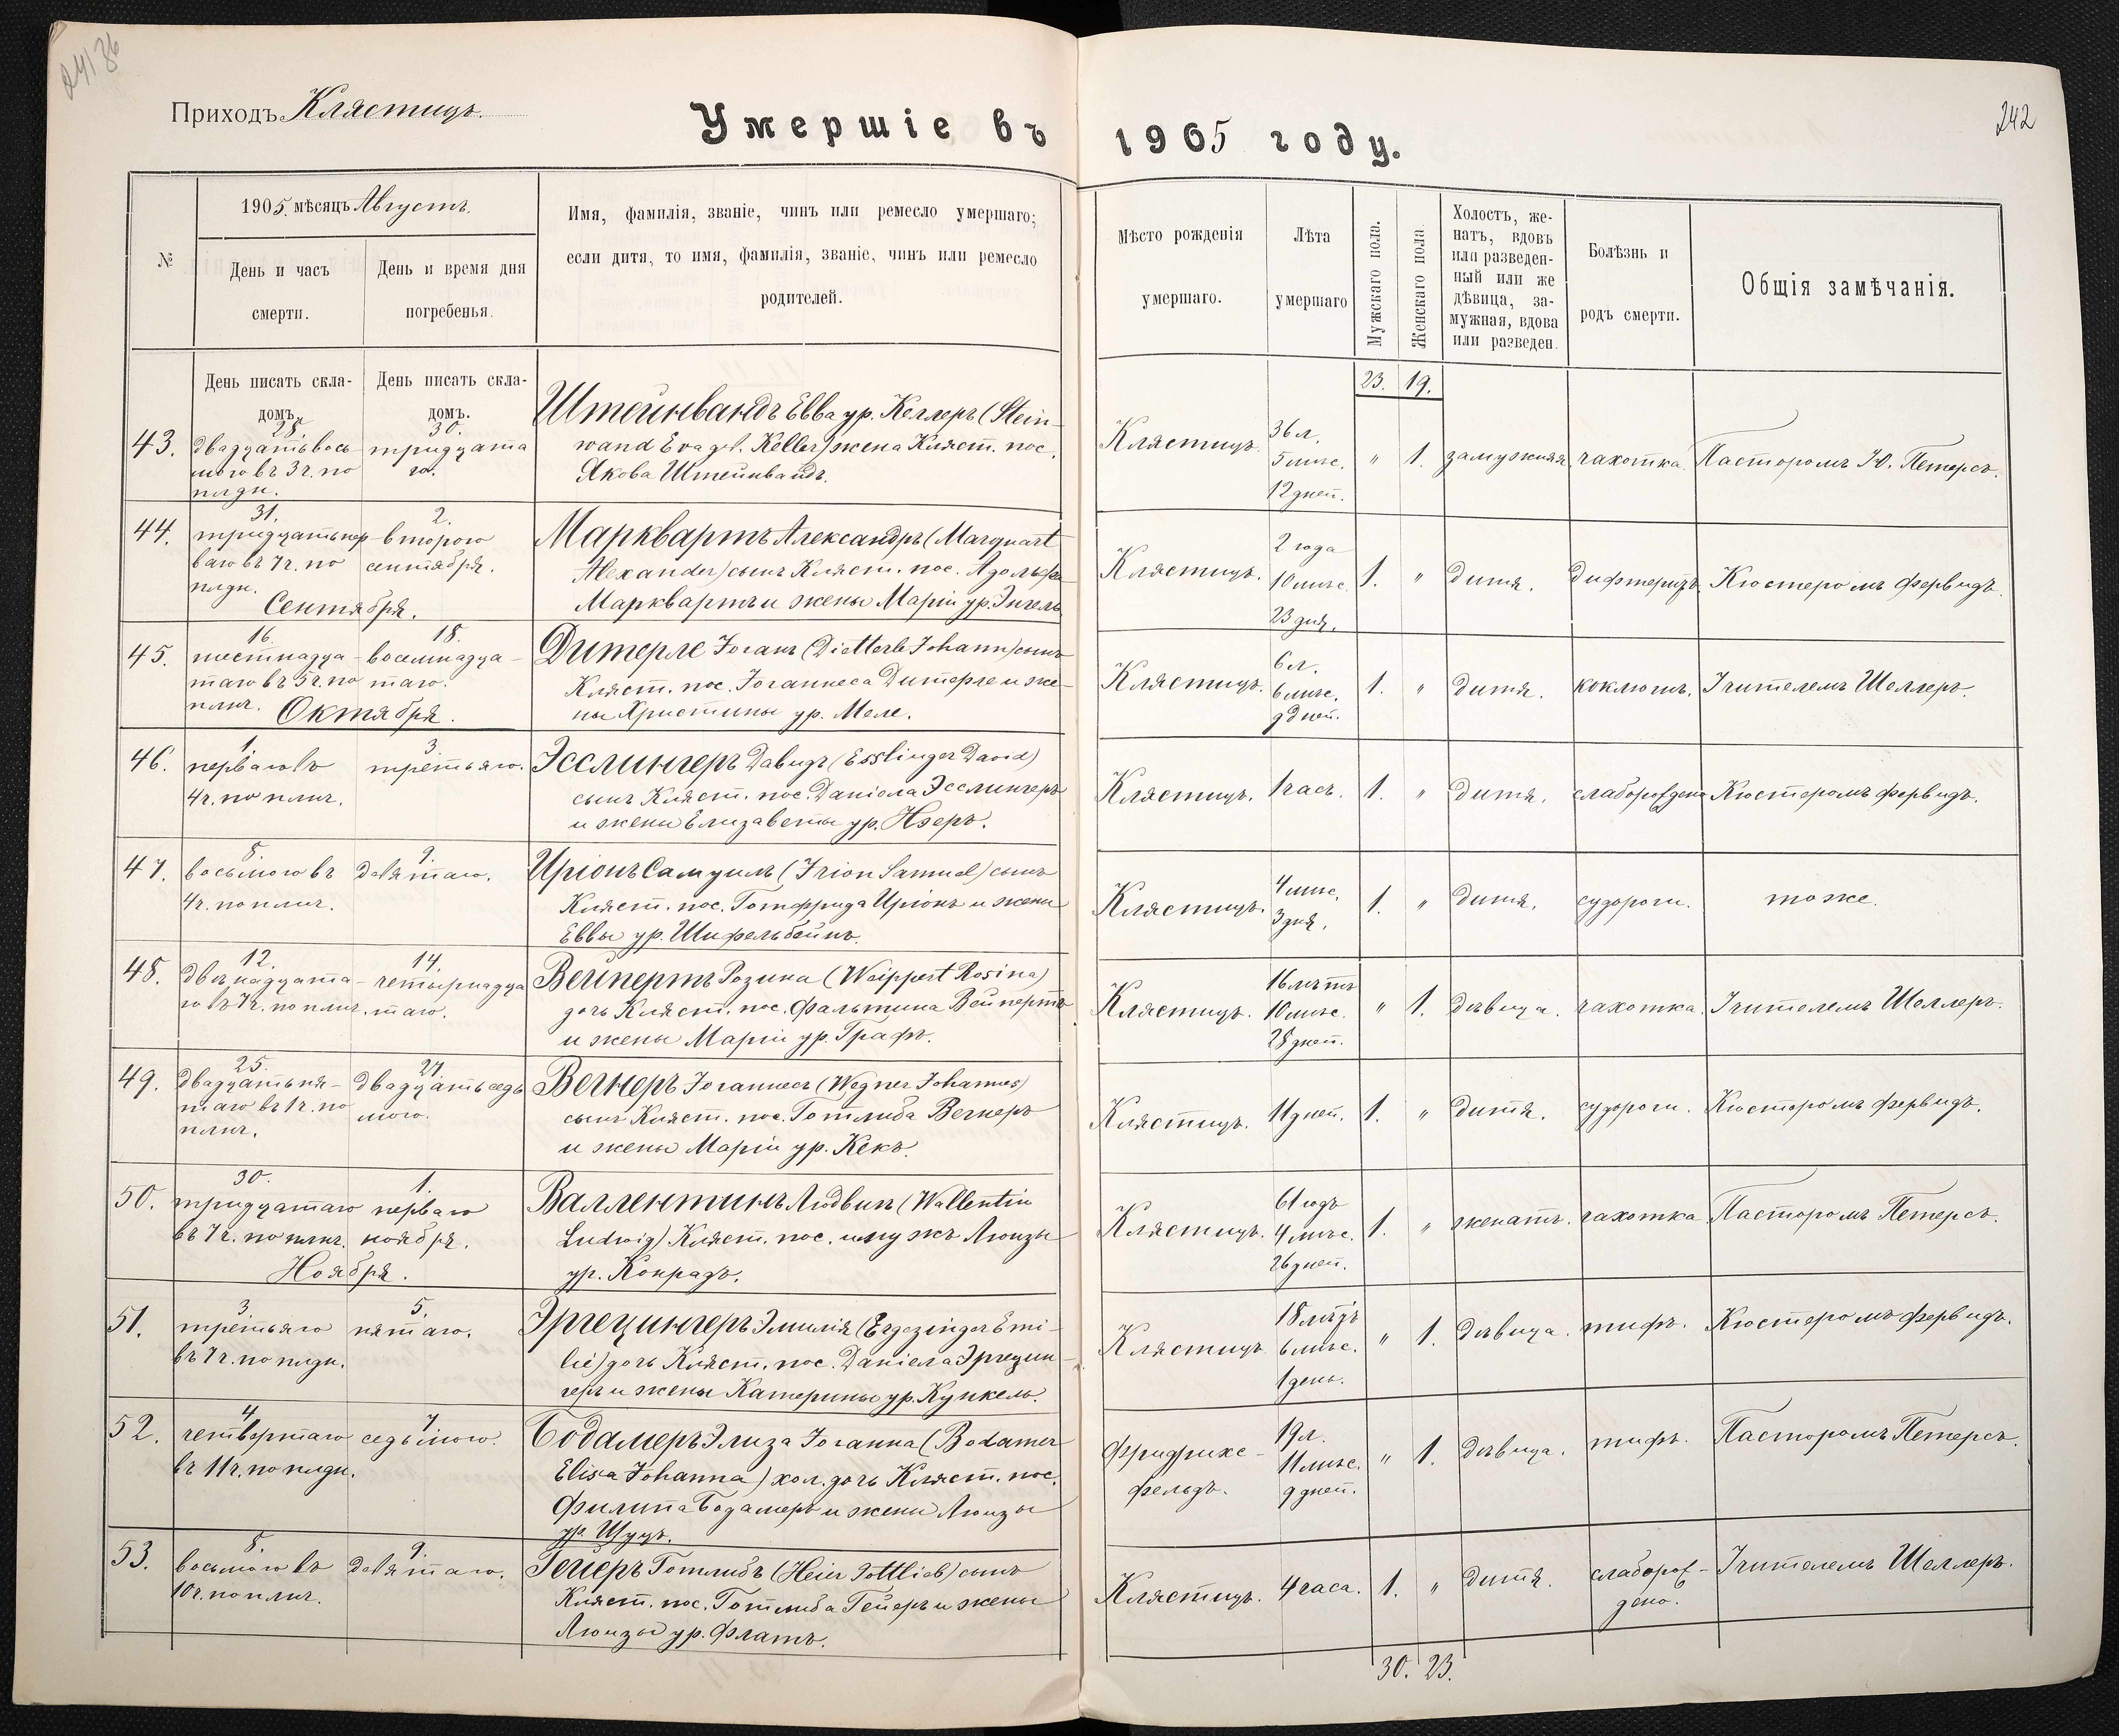 Приходъ Клястицъ.
Умершіе въ 1905 году.
242
№
1905. мѣсяцъ Августъ.
День и часъ
смерти.
День и время дня
погребенья.
Имя, фамилія, званіе, чинъ или ремесло умершаго;
если дитя, то имя, фамилія, званіе, чинъ или ремесло
родителей.
Мѣсто рожденія
умершаго.
Лѣта
умершаго
Мужскаго пола.
Женскаго пола
Холостъ, же-
натъ, вдовъ
или разведен-
ный или же
дѣвица, за-
мужная, вдова
или разведен.
Болѣзнь и
родъ смерти.
Общія замѣчанія.
День писать скла-
домъ.
День писать скла-
домъ.
23. 19.
43.
28.
двадцатьвось
мого въ 3 ч. по
плдн.
30.
тридцата
го.
Штейнвандъ Евва ур. Келлеръ (Stein-
wand Eva geb. Keller) жена Кляст. пос.
Якова Штейнвандъ.
Клястицъ.
36 л.
5 мѣс.
12 дней.
" 1. замужняя. чахотка. Пасторомъ Ю. Петерсъ.
44.
31.
тридцатьпер-
ваго въ 7 ч. по
плдн.
2.
второго
сентября.
Марквартъ Александръ (Marquart
Alexander) сынъ Кляст. пос. Адольфа
Марквартъ и жены Маріи ур. Энгель.
Клястицъ.
2 года
10 мѣс.
23 дня.
1. " дитя. дифтеритъ. Кюстеромъ Фервидъ.
Сентября.
45.
16.
шестнадца-
таго въ 5 ч. по
плнч.
18.
восемнадца-
таго.
Дитерле Іоганъ (Dietterle Johann) сынъ
Кляст. пос. Іоганнеса Дитерле и же-
ны Христины ур. Меле.
Клястицъ.
6 л.
6 мѣс.
9 дней.
1. " дитя. коклюшъ. Учителемъ Шеллеръ.
Октября.
46.
1.
перваго въ
4 ч. по плнч.
3.
третьяго.
Эсслингеръ Давидъ (Esslinger David)
сынъ Кляст. пос. Даніела Эсслингеръ
и жены Елизаветы ур. Нэеръ.
Клястицъ. 1 часъ. 1. " дитя. слаборождено Кюстеромъ Фервидъ.
47.
8.
восьмого въ
4 ч. по плнч.
9.
девятаго.
Иріонъ Самуилъ (Irion Samuel) сынъ
Кляст. пос. Готфрида Иріонъ и жены
Еввы ур. Шифельбейнъ.
Клястицъ.
4 мѣс.
3 дня.
1. " дитя. судороги. тоже.
48.
12.
двѣнадцата-
го въ 7 ч. по плнч.
14.
четырнадца
таго.
Вейпертъ Розина (Weippert Rosina)
дочь Кляст. пос. Фальтина Вейпертъ
и жены Маріи ур. Графъ.
Клястицъ.
16 лѣтъ
10 мѣс.
28 дней.
" 1. дѣвица. чахотка. Учителемъ Шеллеръ.
49.
25.
двадцатьпя-
таго въ 1 ч. по
плнч.
27.
двадцатьседь
мого.
Вегнеръ Іоганнесъ (Wegner Johannes)
сынъ Кляст. пос. Готлиба Вегнеръ
и жены Маріи ур. Кекъ.
Клястицъ. 11 дней. 1. " дитя. судороги. Кюстеромъ Фервидъ.
50.
30.
тридцатаго
въ 7 ч. по плнч.
1.
перваго
ноября.
Валлентинъ Людвигъ (Wallentin
Ludwig) Кляст. пос. мужъ Люизы
ур. Конрадъ.
Клястицъ.
61 годъ
4 мѣс.
26 дней.
1. " женатъ. чахотка. Пасторомъ Петерсъ.
Ноября.
51.
3.
третьяго
въ 7 ч. по плдн.
5.
пятаго.
Эргецингеръ Эмилія (Ergezinger Emi-
lie) дочь Кляст. пос. Даніела Эргецин-
геръ и жены Катерины ур. Кункель.
Клястицъ
18 лѣтъ
6 мѣс.
1 день.
" 1. дѣвица. тифъ. Кюстеромъ Фервидъ.
52.
4.
четвертаго
въ 11 ч. по плдн.
7.
седьмого.
Бодамеръ Элиза Іоганна (Bodamer
Elisa Johanna) хол. дочь Кляст. пос.
Филипа Бодамеръ и жены Люизы
ур. Шуцъ.
Фридрихс-
фельдъ.
19 л.
11 мѣс.
9 дней.
" 1. дѣвица. тифъ. Пасторомъ Петерсъ.
53.
8.
восьмого въ
10 ч. по плнч.
9.
девятаго.
Гейеръ Готлибъ (Heier Gottlieb) сынъ
Кляст. пос. Готлиба Гейеръ и жены
Люизы ур. Флатъ.
Клястицъ. 4 часа. 1. " дитя.
слаборож-
дено.
Учителемъ Шеллеръ.
30. 23.